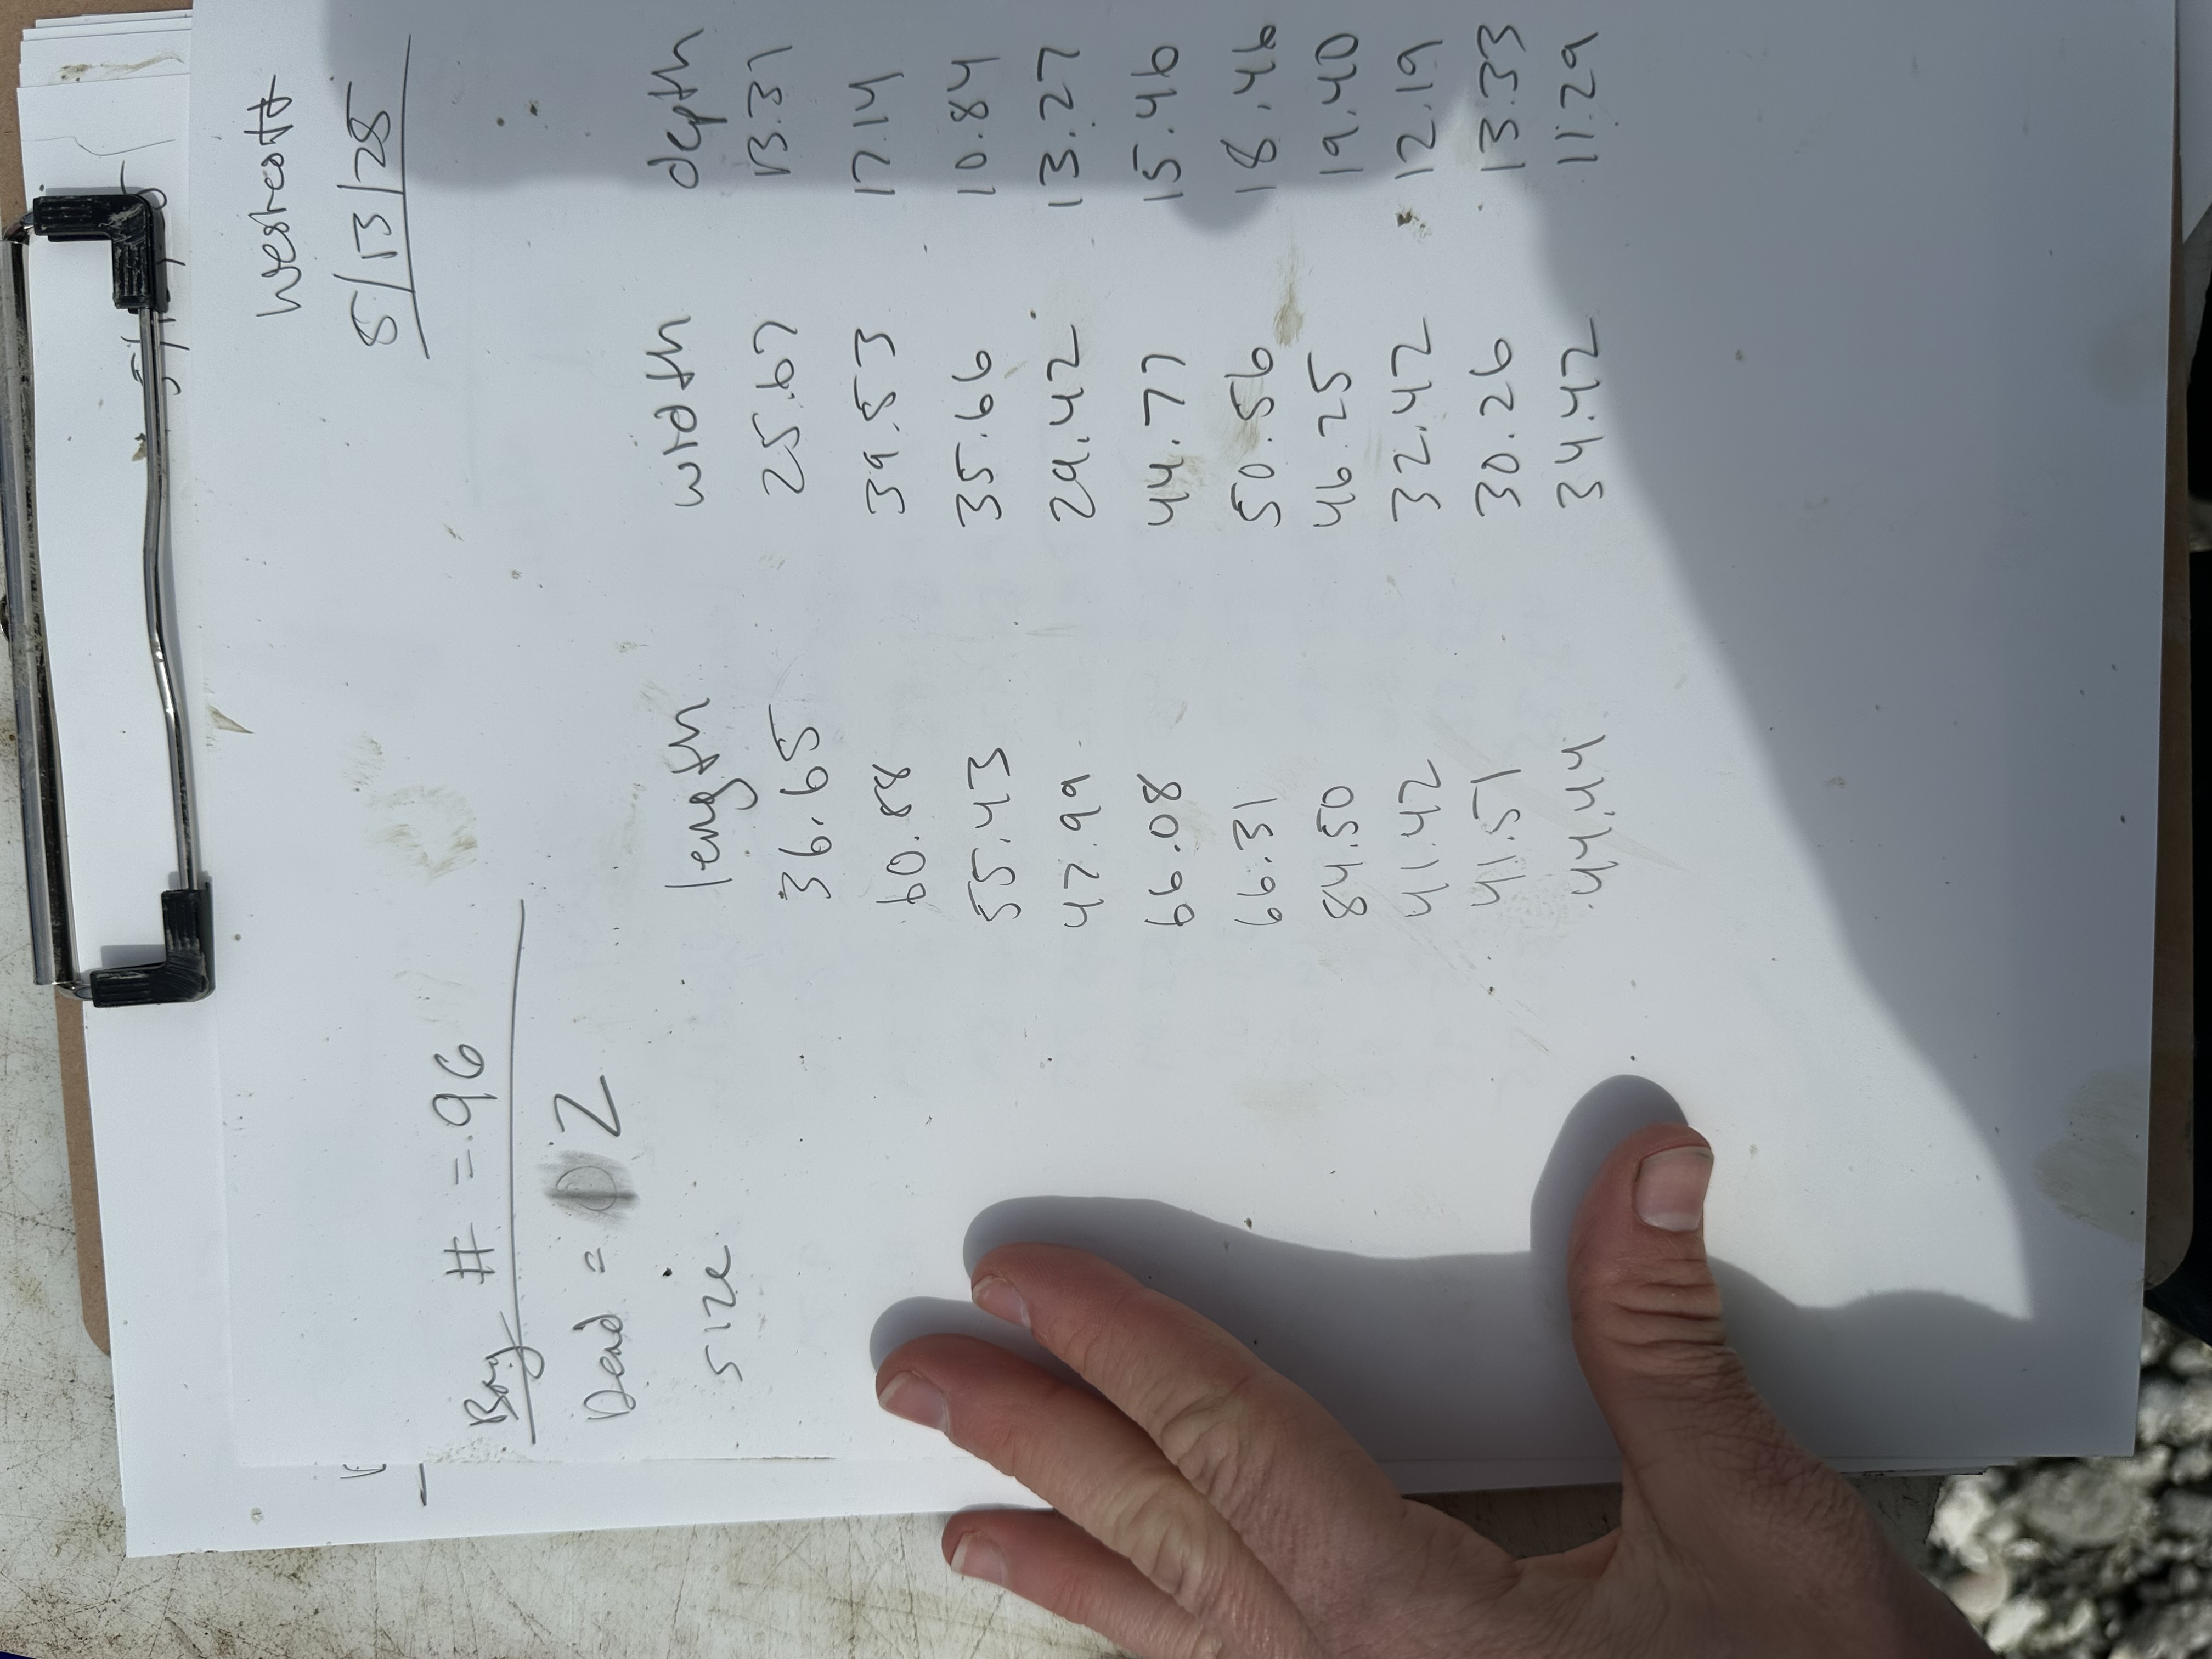 Westcott
5/13/25
Bag # = 96
Dead = 2
size length width depth
36.65 25.67 13.31
60.88 39.53 17.14
55.43 35.66 10.84
47.99 29.42 13.27
66.08 44.77 15.46
66.31 50.56 18.46
84.50 46.25 19.40
41.42 32.42 12.19
41.51 30.26 13.33
44.44 34.42 11.29